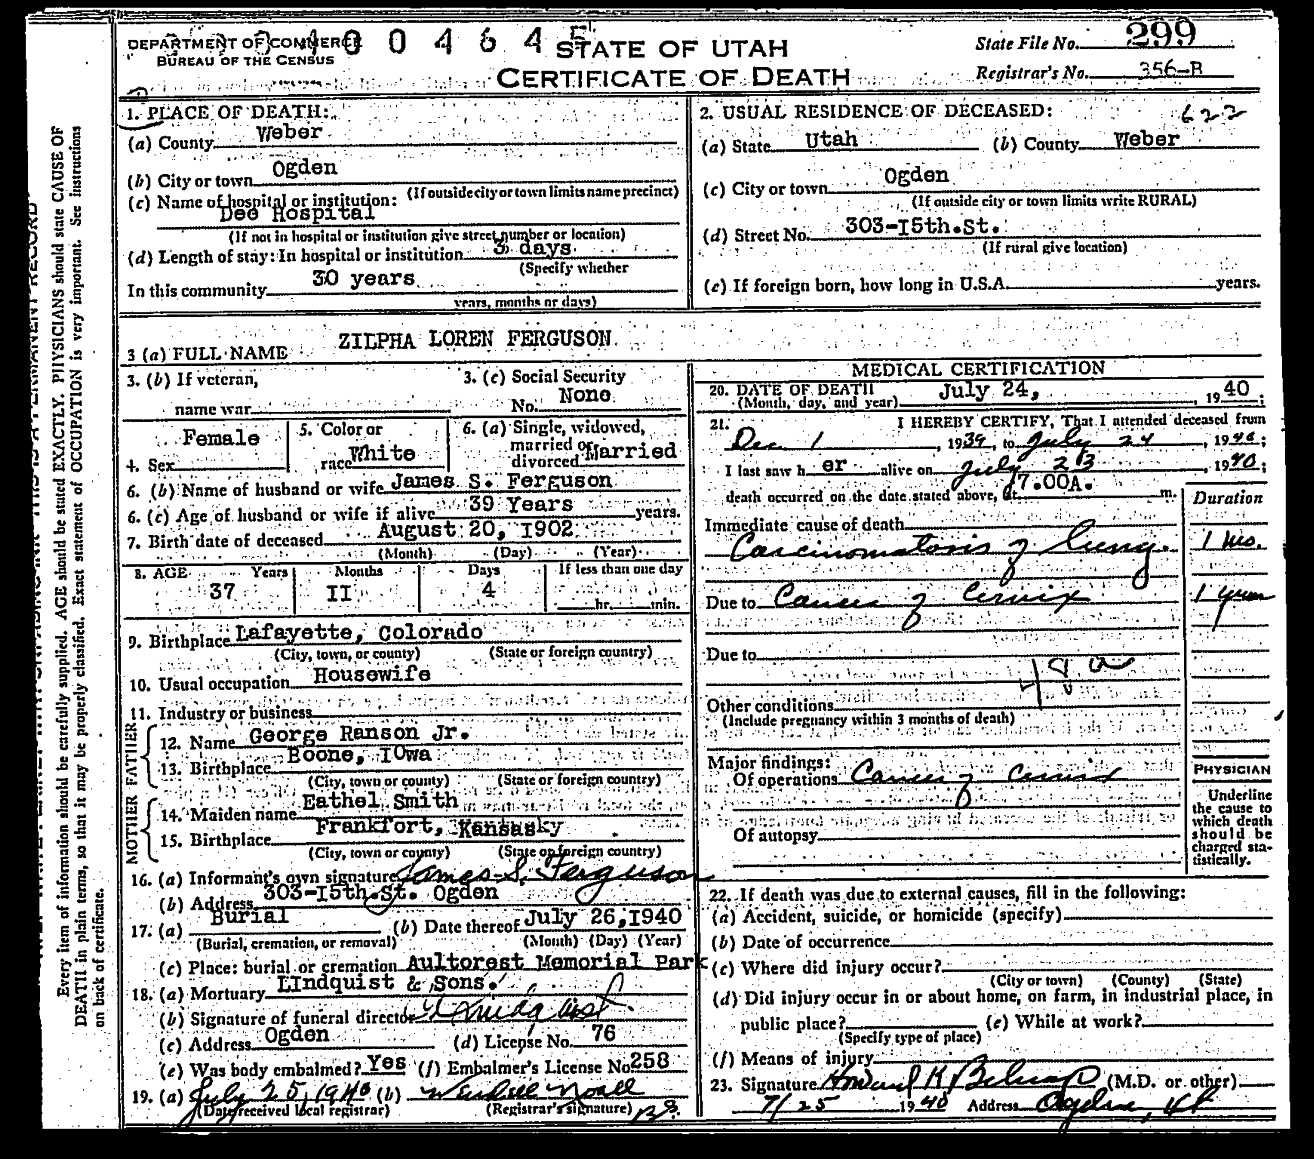 DEPARTMENT OF COMMERCE
BUREAU OF THE CENSUS
4 0 0 4 6 4 5
STATE OF UTAH
CERTIFICATE OF DEATH
State File No. 299
Registrar's No. 356-B
1. PLACE OF DEATH:
(a) County Weber
(b) City or town Ogden
(If outside city or town limits name precinct)
(c) Name of hospital or institution:
Dee Hospital
(If not in hospital or institution give street number or location)
(d) Length of stay: In hospital or institution 3 days
(Specify whether
In this community 30 years
years, months or days)
2. USUAL RESIDENCE OF DECEASED:
622
(a) State Utah (b) County Weber
(c) City or town Ogden
(If outside city or town limits write RURAL)
(d) Street No. 303-I5th.St.
(If rural give location)
(e) If foreign born, how long in U.S.A. years.
3 (a) FULL NAME ZILPHA LOREN FERGUSON
3. (b) If veteran,
name war
3. (c) Social Security
No. None
4. Sex Female
5. Color or
race White
6. (a) Single, widowed,
married or
divorced Married
6. (b) Name of husband or wife James S. Ferguson
6. (c) Age of husband or wife if alive 39 Years years.
7. Birth date of deceased August 20, I902
(Month) (Day) (Year)
8. AGE Years Months Days If less than one day
37 II 4 hr. min.
9. Birthplace Lafayette, Colorado
(City, town, or county) (State or foreign country)
10. Usual occupation Housewife
11. Industry or business
FATHER
12. Name George Ranson Jr.
13. Birthplace Boone, IOwa
(City, town or county) (State or foreign country)
MOTHER
14. Maiden name Eathel Smith
15. Birthplace Frankfort, Kansasky
(City, town or county) (State or foreign country)
16. (a) Informant's own signature James S. Ferguson
(b) Address 303-I5th.St. Ogden
17. (a) Burial (b) Date thereof July 26,I940
(Burial, cremation, or removal) (Month) (Day) (Year)
(c) Place: burial or cremation Aultorest Memorial Park
18. (a) Mortuary LIndquist & Sons.
(b) Signature of funeral director
(c) Address Ogden (d) License No. 76
(e) Was body embalmed? Yes (f) Embalmer's License No 258
19. (a) July 25, 1940 (b)
(Date received local registrar) (Registrar's signature)
MEDICAL CERTIFICATION
20. DATE OF DEATH
(Month, day, and year) July 24, , 1940 ;
21. I HEREBY CERTIFY, That I attended deceased from
Dec 1 , 1939, to July 24 , 1940;
I last saw h er alive on July 23 , 1940;
death occurred on the date stated above, at 7.00A. m.
Duration
Immediate cause of death
Carcinomatosis of lung. 1 mo.
Due to Cancer of Cervix 1 year
Due to
48a
Other conditions
(Include pregnancy within 3 months of death)
Major findings:
Of operations Cancer of Cervix
Of autopsy
PHYSICIAN
Underline
the cause to
which death
should be
charged sta-
tistically.
22. If death was due to external causes, fill in the following:
(a) Accident, suicide, or homicide (specify)
(b) Date of occurrence
(c) Where did injury occur?
(City or town) (County) (State)
(d) Did injury occur in or about home, on farm, in industrial place, in
public place? (e) While at work?
(Specify type of place)
(f) Means of injury
23. Signature Howard K Belnap (M.D. or other)
7/25 1940 Address Ogden, Ut
Every item of information should be carefully supplied. AGE should be stated EXACTLY. PHYSICIANS should state CAUSE OF
DEATH in plain terms, so that it may be properly classified. Exact statement of OCCUPATION is very important. See instructions
on back of certificate.